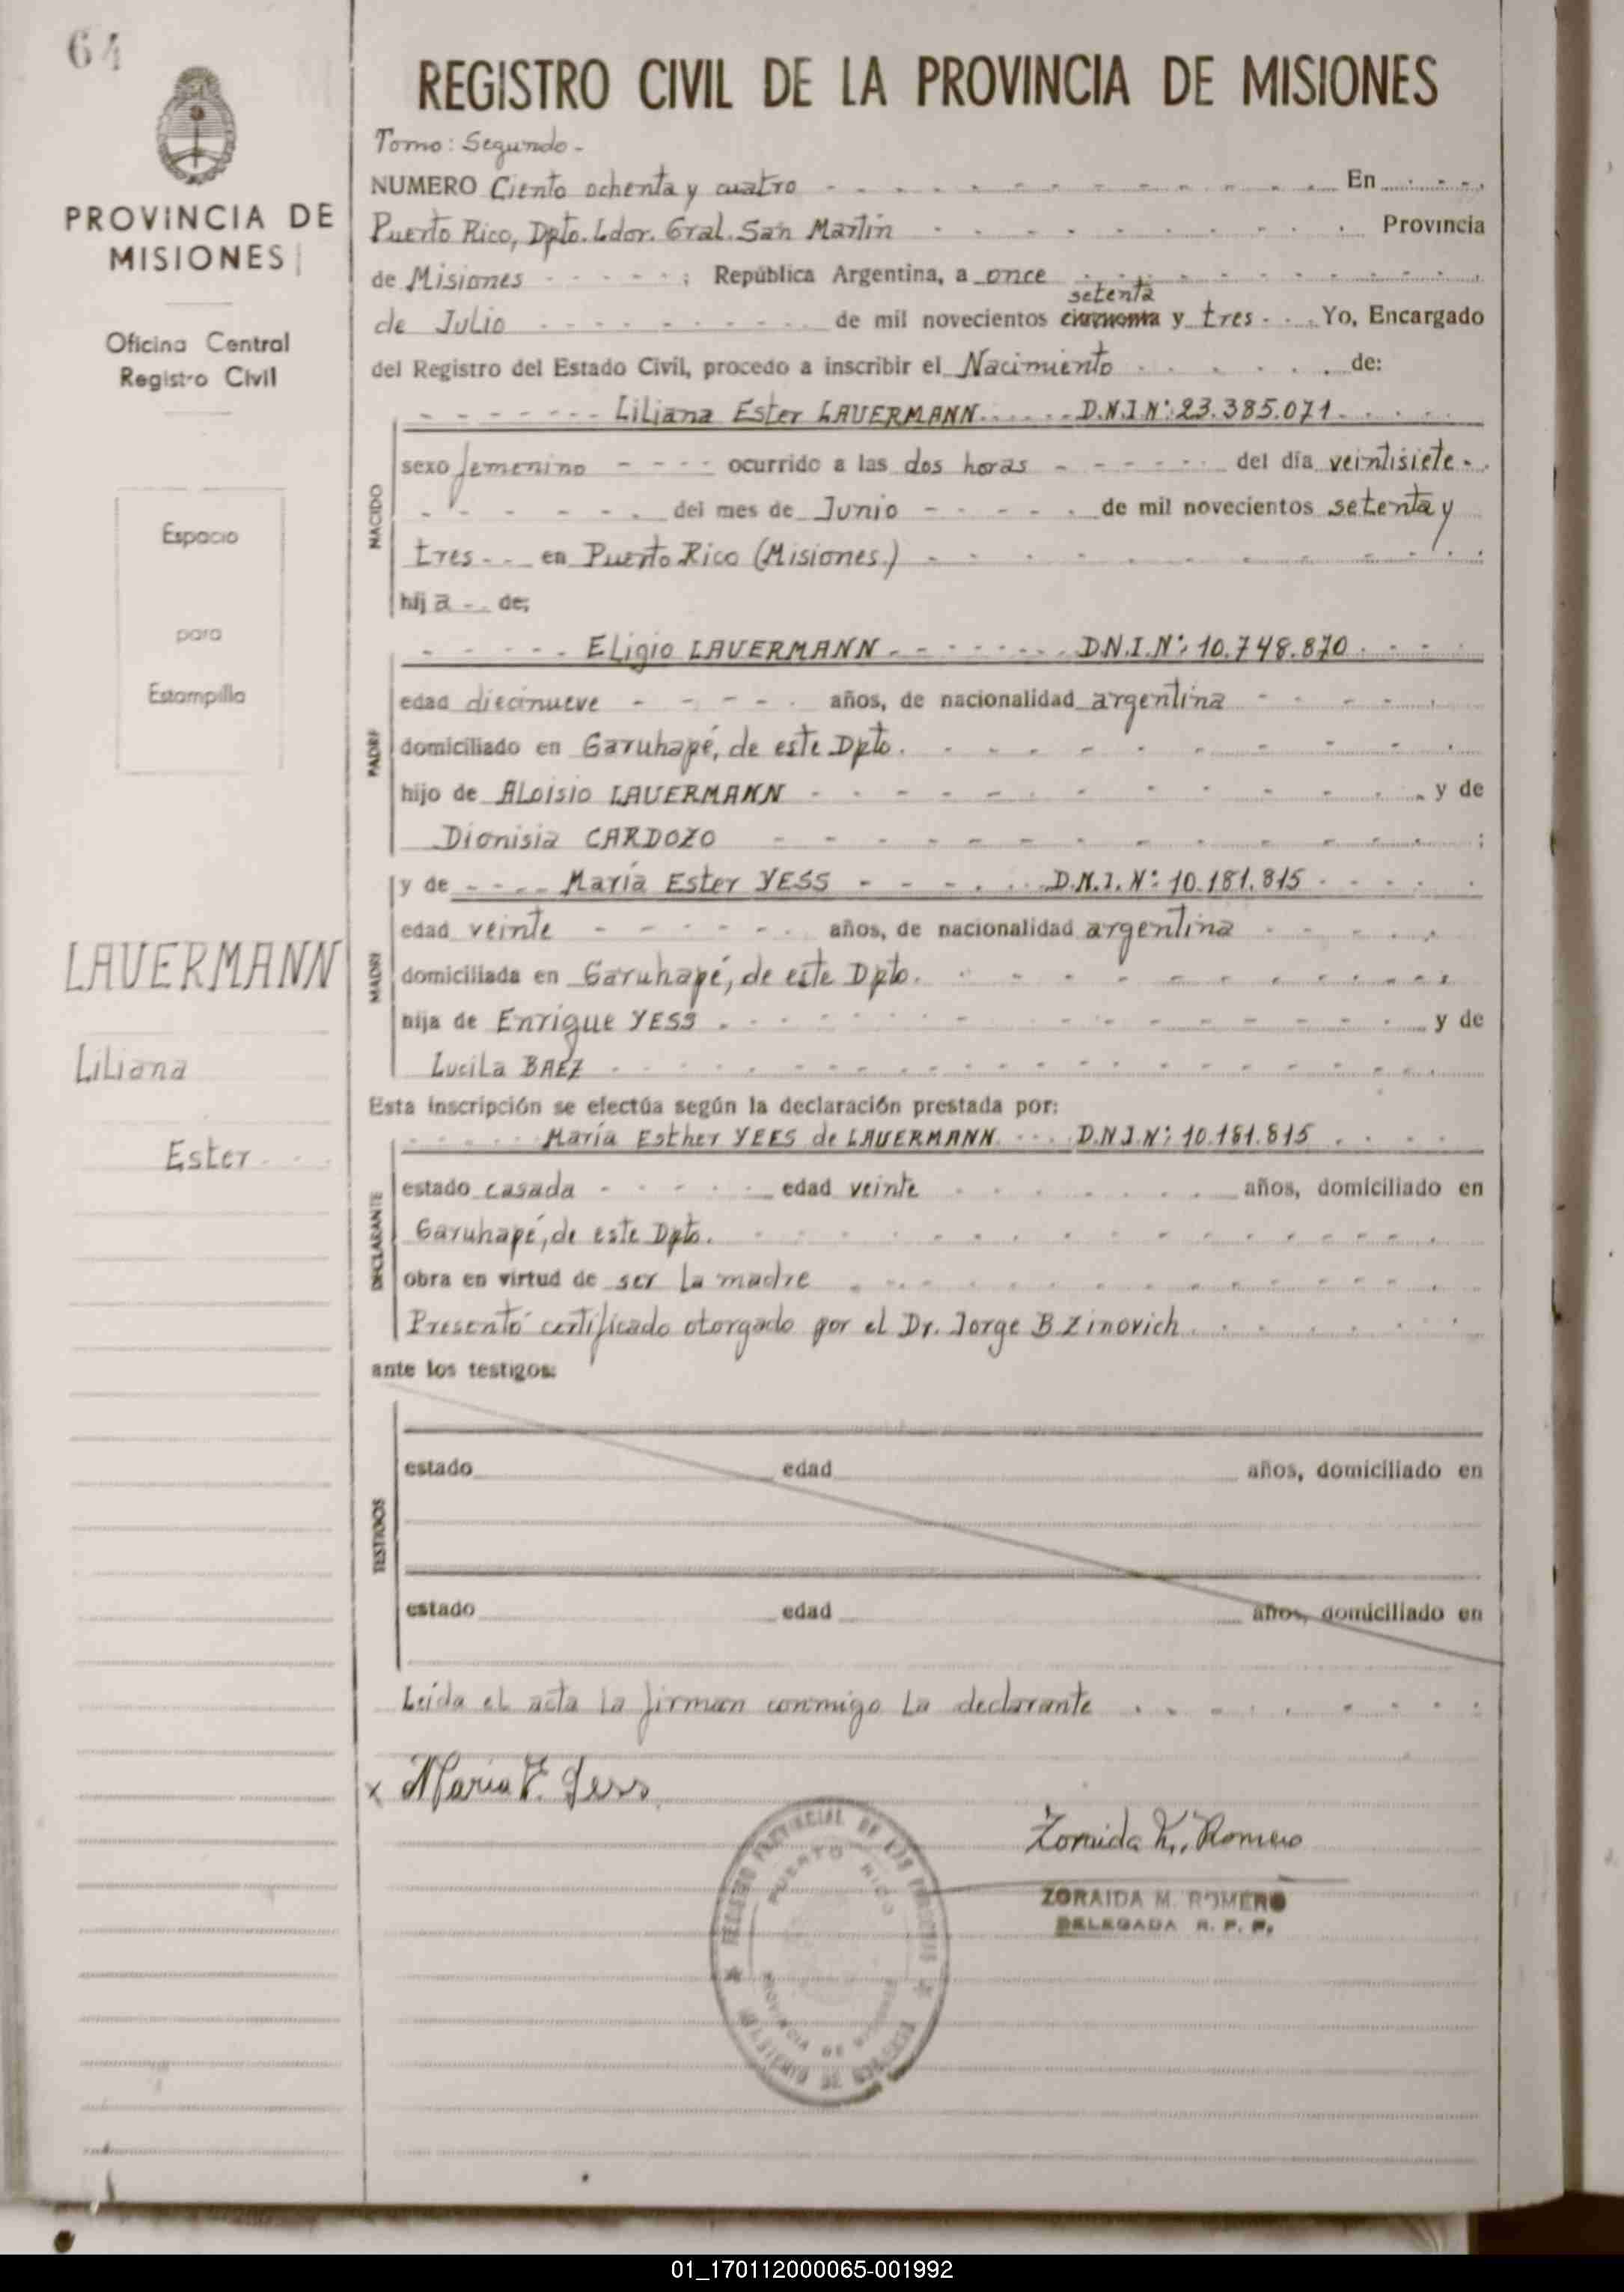 64
PROVINCIA DE
MISIONES
Oficina Central
Registro Civil
Espacio
para
Estampilla
LAUERMANN
Liliana
Ester
REGISTRO CIVIL DE LA PROVINCIA DE MISIONES
Tomo: Segundo -
NUMERO Ciento ochenta y cuatro En
Puerto Rico, Dpto. Ldor. Gral. San Martín Provincia
de Misiones ; República Argentina, a once
setenta
de Julio de mil novecientos cincuenta y tres Yo, Encargado
del Registro del Estado Civil, procedo a inscribir el Nacimiento de:
Liliana Ester LAUERMANN D.N.I Nº: 23.385.071
NACIDO
sexo femenino ocurrido a las dos horas del día veintisiete
del mes de Junio de mil novecientos setenta y
tres en Puerto Rico (Misiones)
hij a de;
Eligio LAUERMANN D.N.I. Nº: 10.748.870
PADRE
edad diecinueve años, de nacionalidad argentina
domiciliado en Garuhapé, de este Dpto.
hijo de Aloisio LAUERMANN y de
Dionisia CARDOZO ;
y de María Ester YESS D.N.I. Nº: 10.181.815
MADRE
edad veinte años, de nacionalidad argentina
domiciliada en Garuhapé, de este Dpto.
hija de Enrique YESS y de
Lucila BAEZ
Esta inscripción se efectúa según la declaración prestada por:
María Esther YEES de LAUERMANN D.N.I. Nº: 10.181.815
DECLARANTE
estado casada edad veinte años, domiciliado en
Garuhapé, de este Dpto.
obra en virtud de ser la madre
Presentó certificado otorgado por el Dr. Jorge B Zinovich
ante los testigos:
TESTIGOS
estado edad años, domiciliado en
estado edad años, domiciliado en
Leída el acta la firman conmigo la declarante
x María E. Yess
Zoraida M. Romero
ZORAIDA M. ROMERO
DELEGADA R. P. P.
REGISTRO PROVINCIAL DE LAS PERSONAS
PUERTO RICO
PROVINCIA DE MISIONES
MINISTERIO DE GOBIERNO
01_170112000065-001992